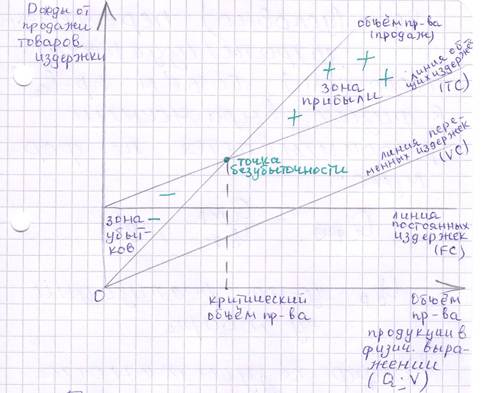 Доходы от
продажи
товаров
издержки
объём пр-ва
(продаж)
зона
прибыли
линия об-
щих издержек
(TC)
линия пере-
менных издержек
(VC)
точка
безубыточности
зона
убыт-
ков
линия
постоянных
издержек
(FC)
0
критический
объём пр-ва
Объём
пр-ва
продукции в
физич. выра-
жении
(Q; V)